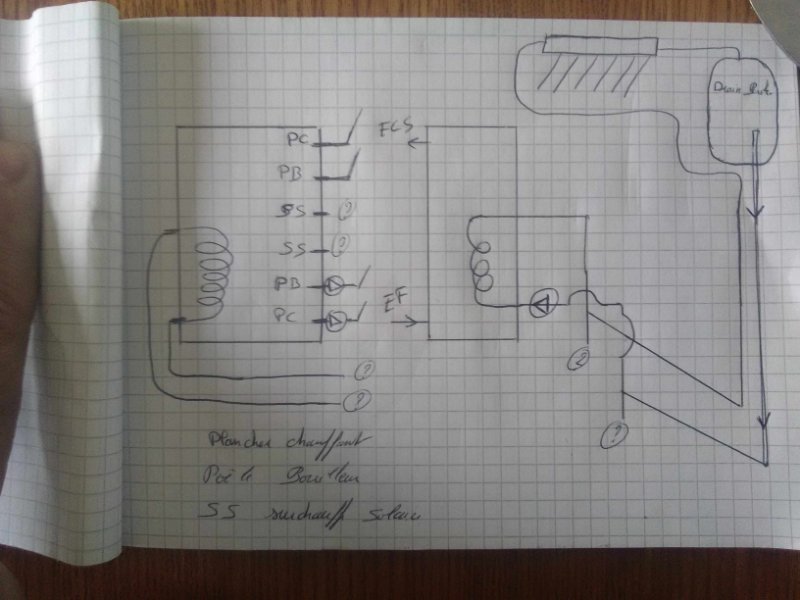 Drain Back
PC
ECS
PB
SS ?
SS ?
PB
EF
PC
?
?
?
?
Plancher chauffant
Poêle Bouilleur
SS surchauff Solaire